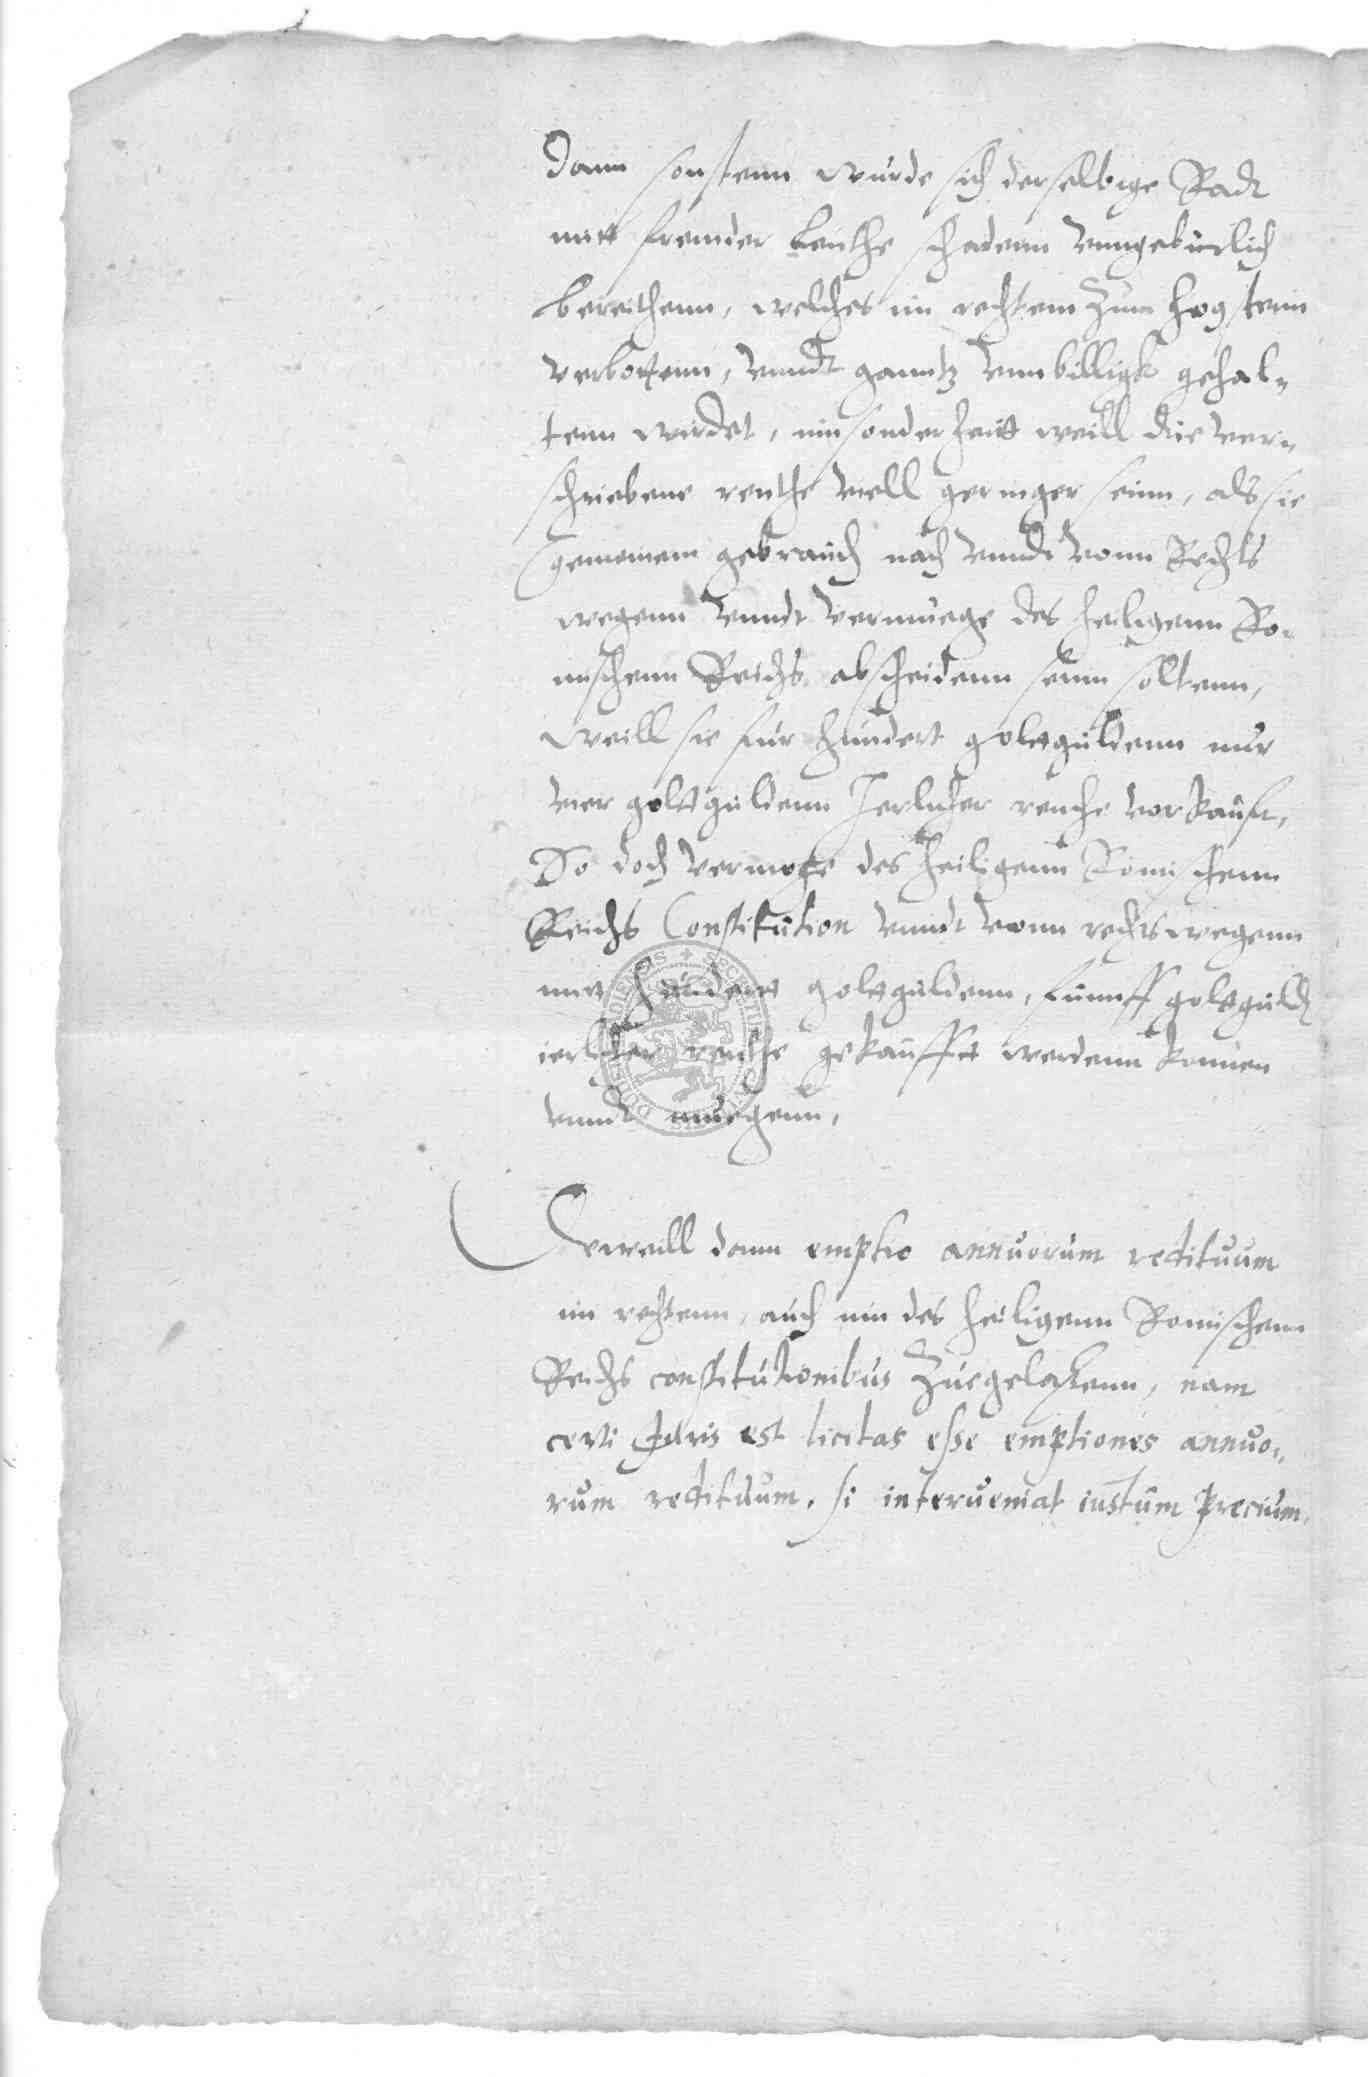 Dann sonstenn wurde sich derselbige Radt
mitt fremder leuthe schadenn unngeburlich
bereichenn, welches im rechtenn zum hogstenn
verbottenn, unndt ganntz unnbilligk gehal„
tenn wirdet, innsonderheitt weill die ver„
schriebene renthe viell geringer seinn, als sie
gemeinem gebrauch nach unndt vonn Rechts
wegenn unndt vermuege des heiligenn Ro„
mischenn Reichs abscheidenn seinn soltenn,
weill sie fur hundert goltguldenn nur
vier goltguldenn Jerlicher renthe vorkauft,
Do doch vermoge des heiligenn Romischenn
Reichs Constitution unndt vonn rechts wegenn
mitt hundertt goltguldenn, funff goltguld
ierlicher renthe gekaufftt werdenn konnen
unndt muegenn,
Dieweill dann emptio annuorum redituum
im rechtenn, auch inn des heiligenn Romischenn
Reichs constitutionibus zuegelassenn, nam
certi Juris est licitas esse emptiones annuo„
rum redituum, si interueniat iustum precium,
SECRETUM